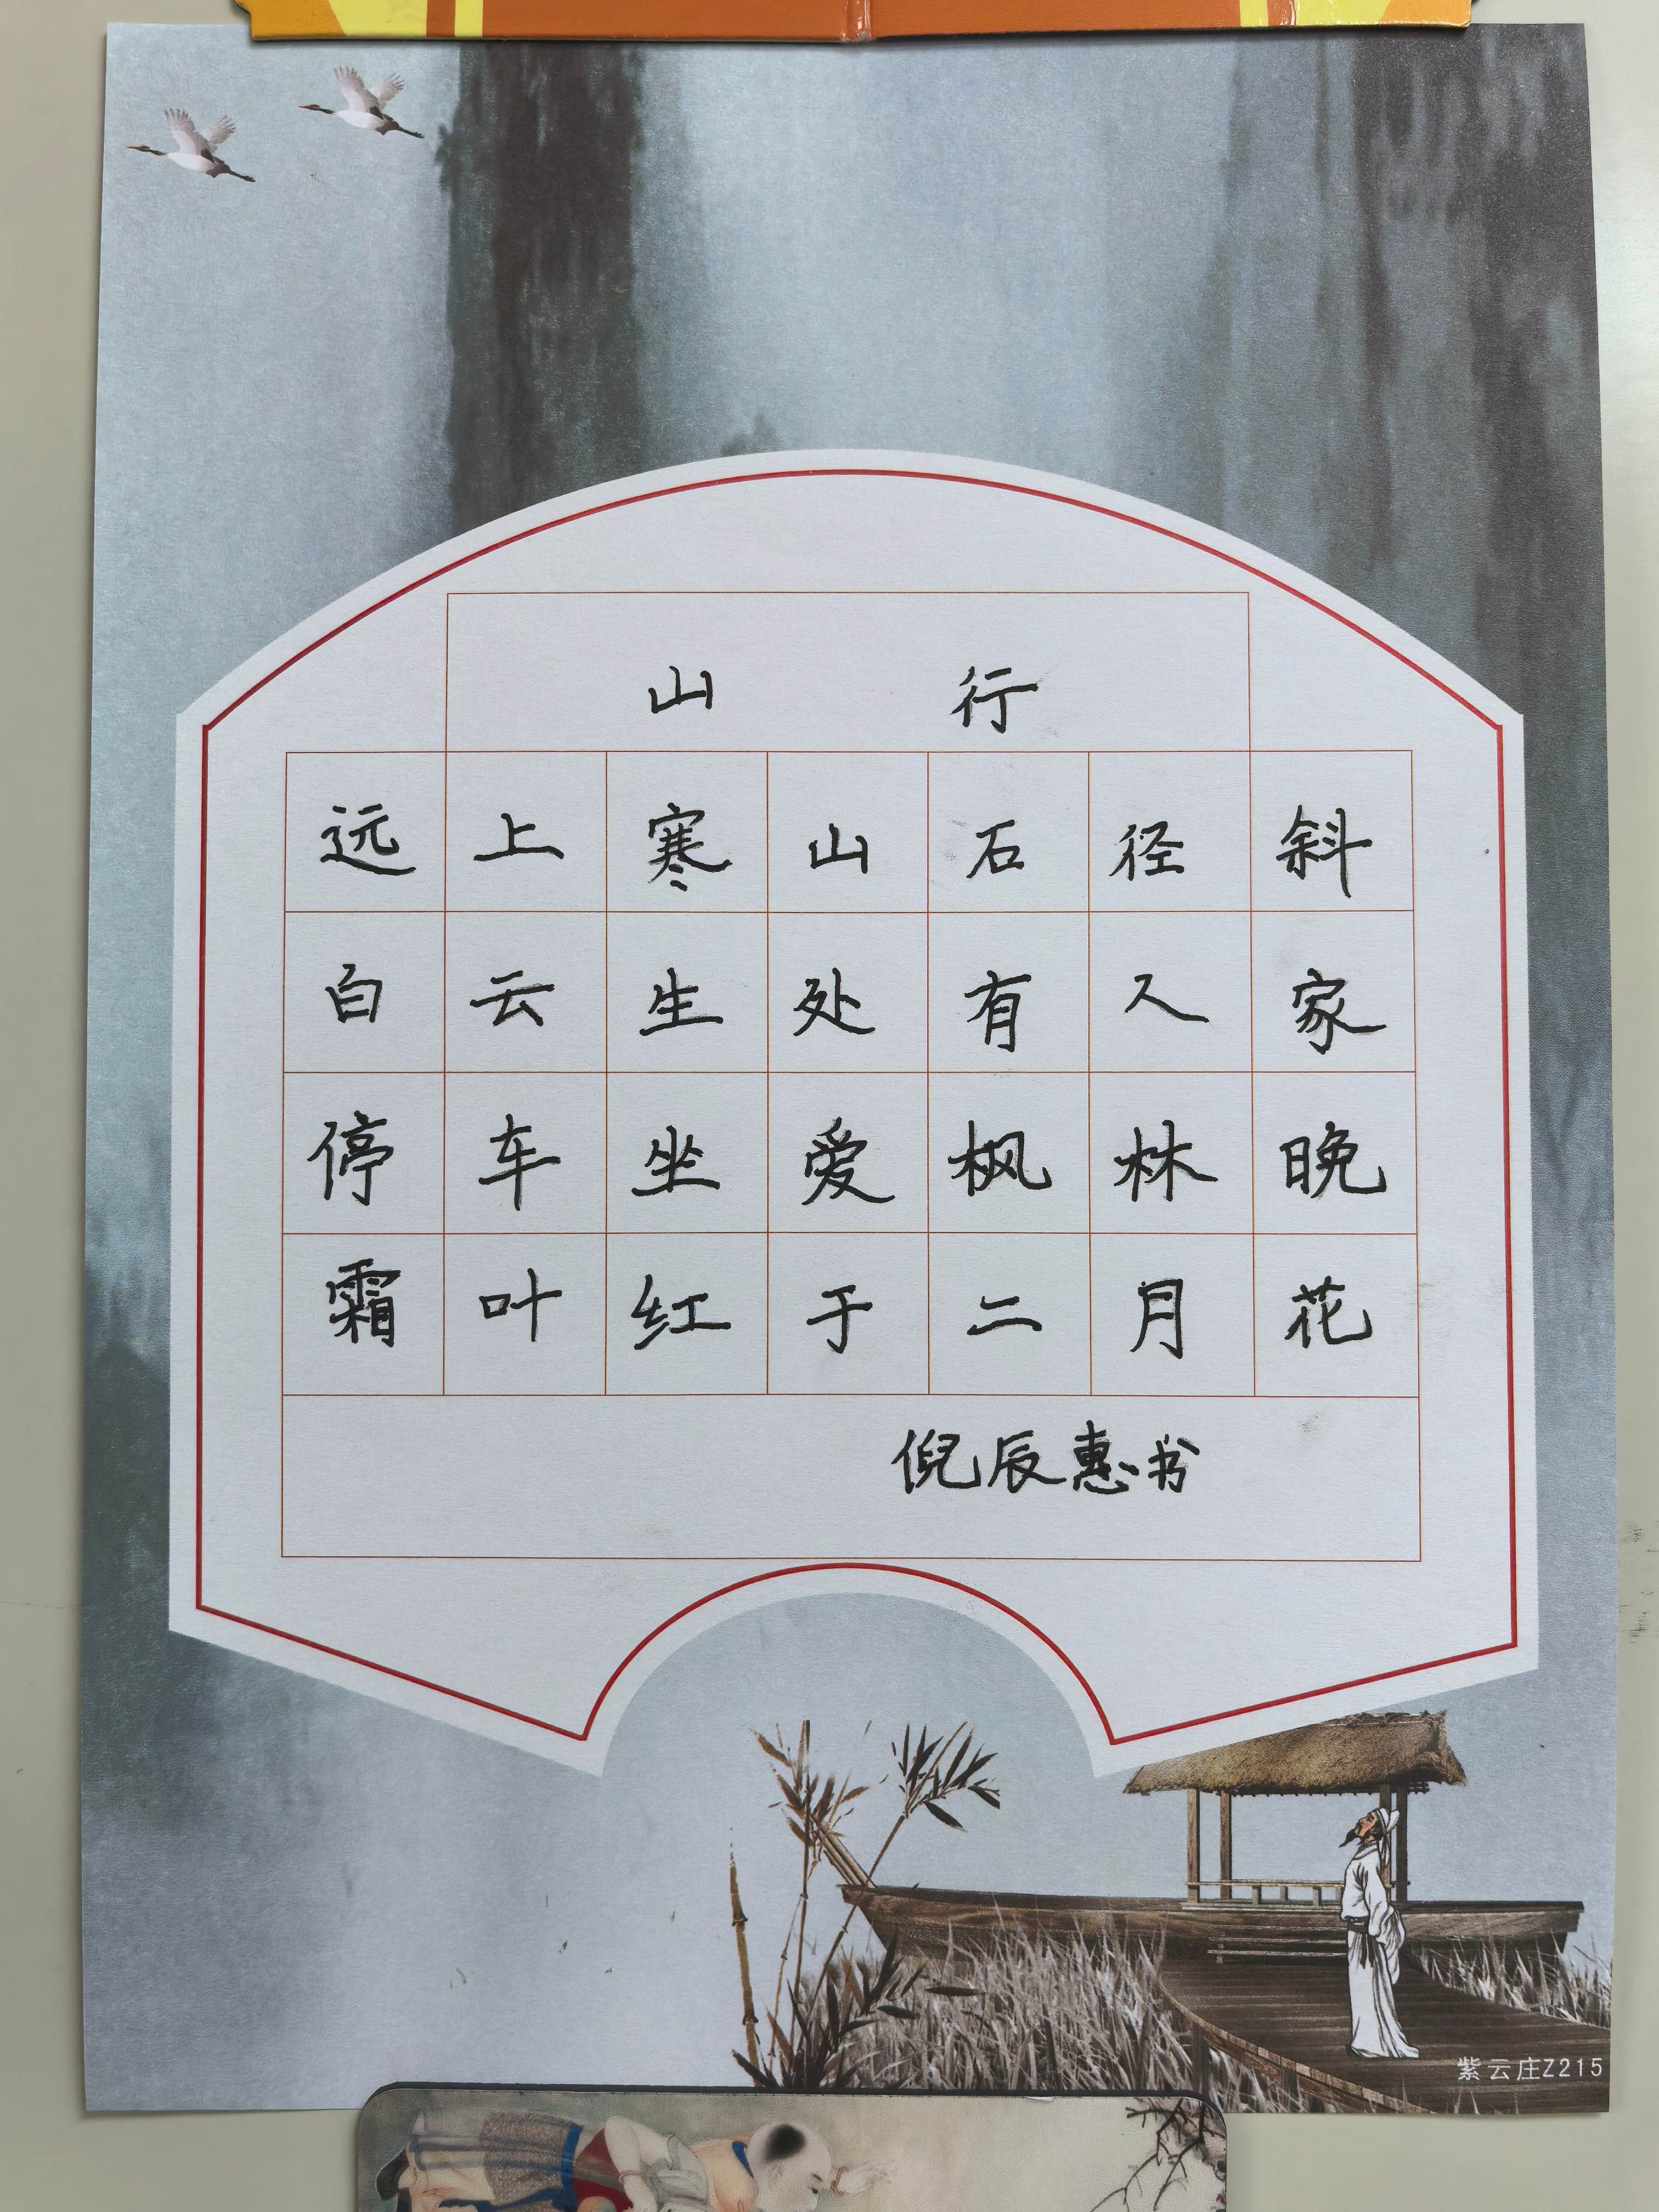 山行
远上寒山石径斜
白云生处有人家
停车坐爱枫林晚
霜叶红于二月花
倪辰惠书
紫云庄Z215